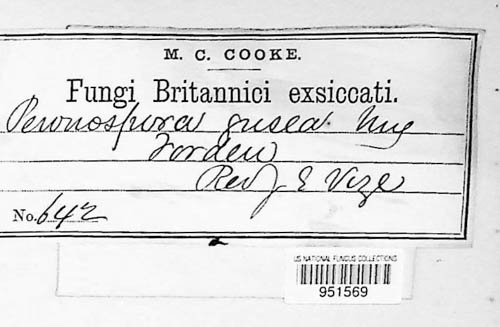 M. C. COOKE.
Fungi Britannici exsiccati.
Peronospora grisea Ung
Forden
Rev J E Vize
No. 642
US NATIONAL FUNGUS COLLECTIONS
951569